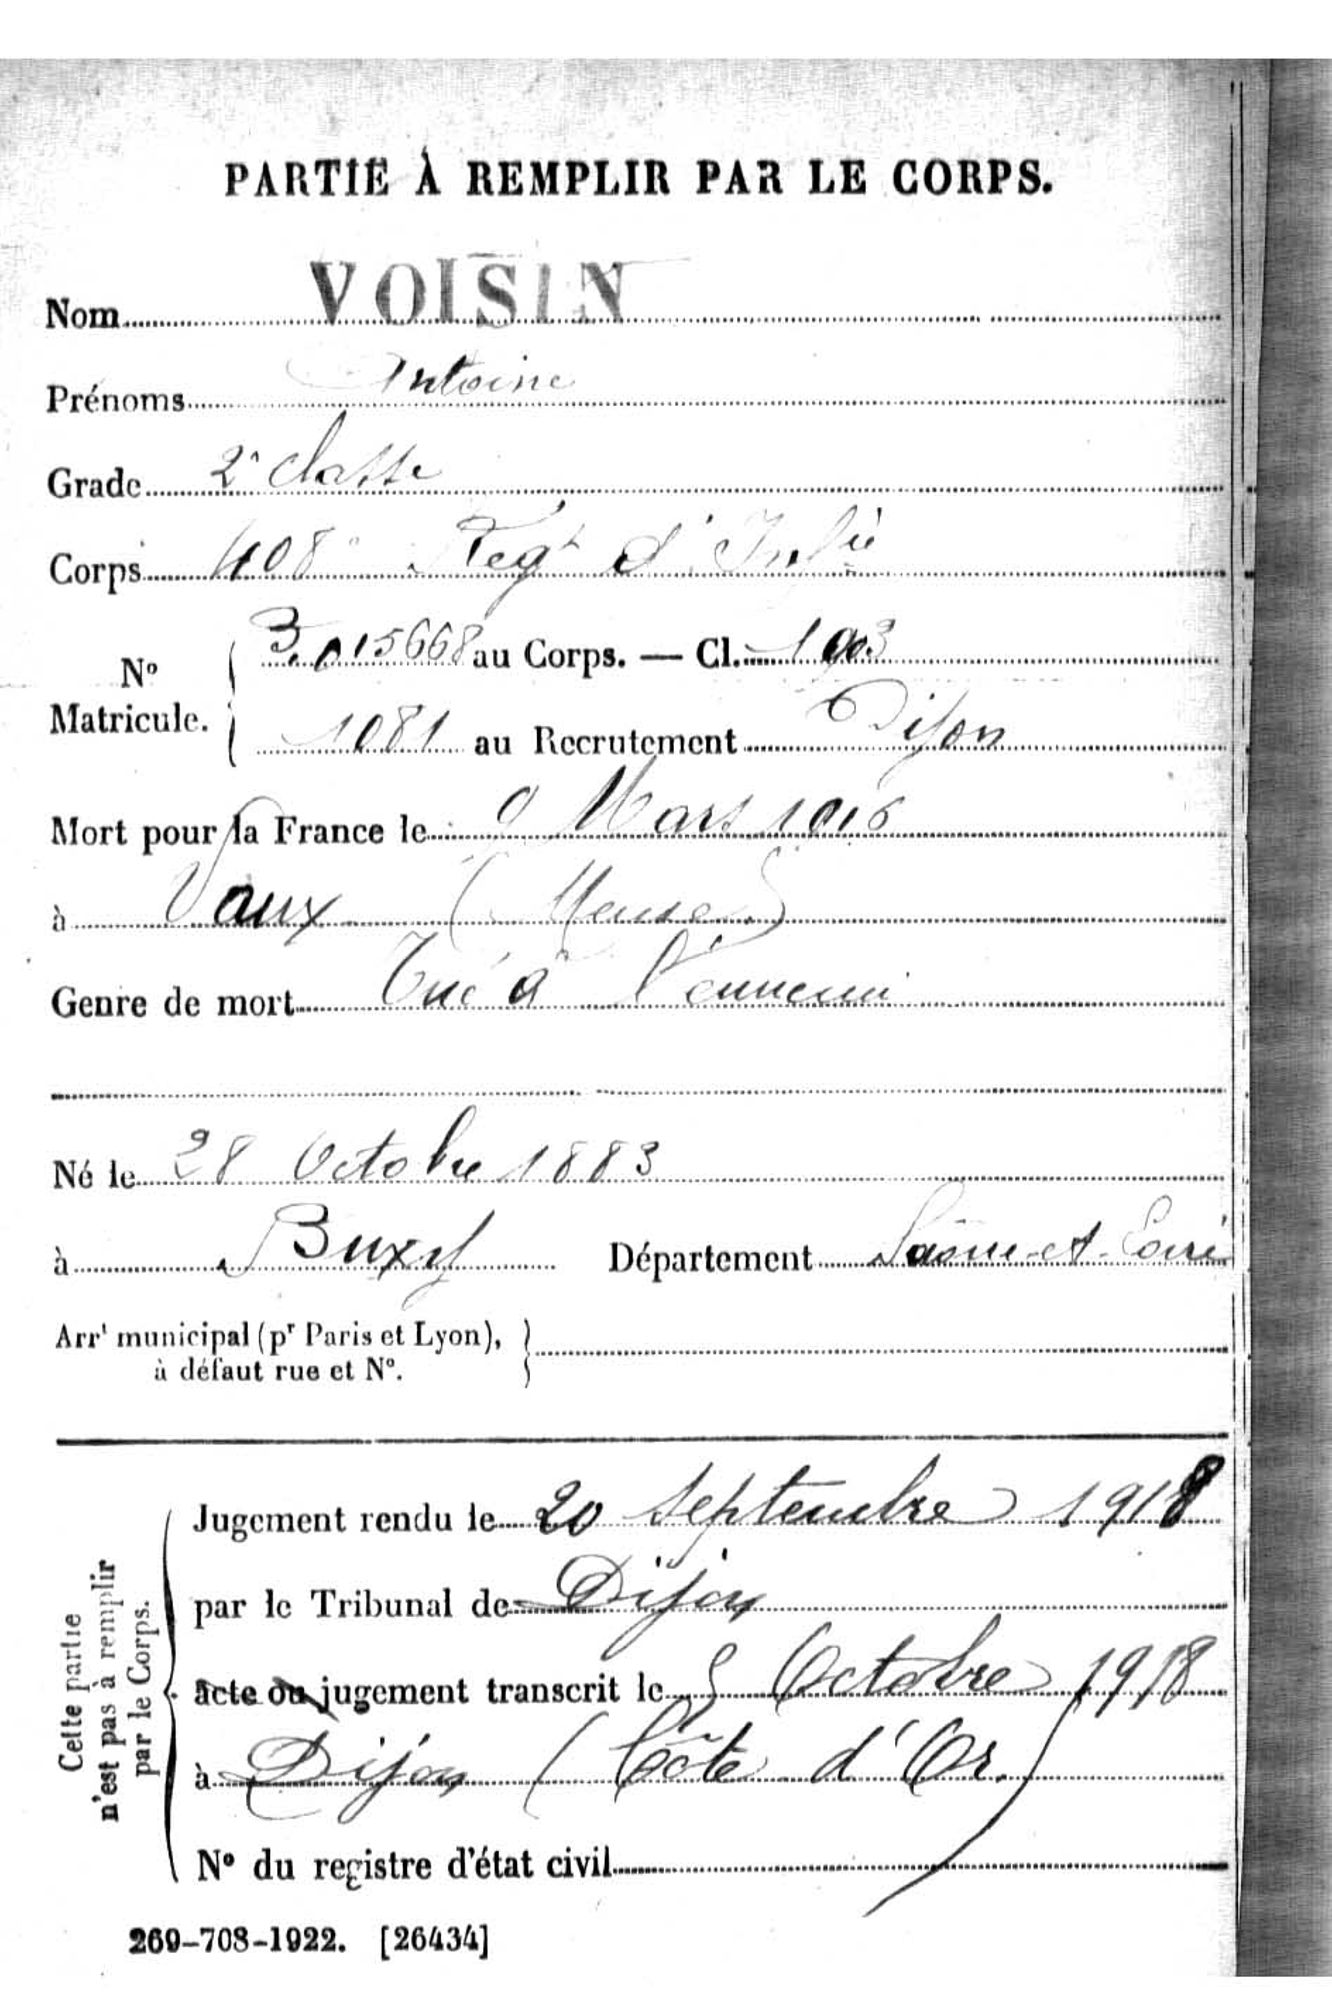 PARTIE À REMPLIR PAR LE CORPS.
Nom VOISIN
Prénoms Antoine
Grade 2e classe
Corps 408e Regt d'Infie
No Matricule. { 3.015668 au Corps. — Cl. 1903
1081 au Recrutement Dijon
Mort pour la France le 9 Mars 1916
à Vaux (Meuse)
Genre de mort Tué à l'ennemi
Né le 28 Octobre 1883
à Buxy Département Saône-et-Loire
Arrt municipal (pr Paris et Lyon), }
à défaut rue et No.
Cette partie
n'est pas à remplir
par le Corps.
Jugement rendu le 20 Septembre 1918
par le Tribunal de Dijon
acte ou jugement transcrit le 5 Octobre 1918
à Dijon (Côte d'Or)
No du registre d'état civil
269-708-1922. [26434]